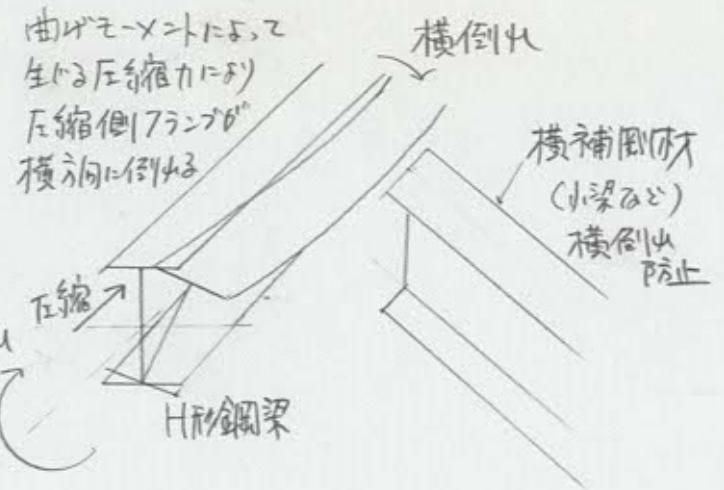 曲げモーメントによって
生じる圧縮力により
圧縮側フランジが
横方向に倒れる
横倒れ
横補剛材
(小梁など)
横倒れ
防止
圧縮
M
H形鋼梁